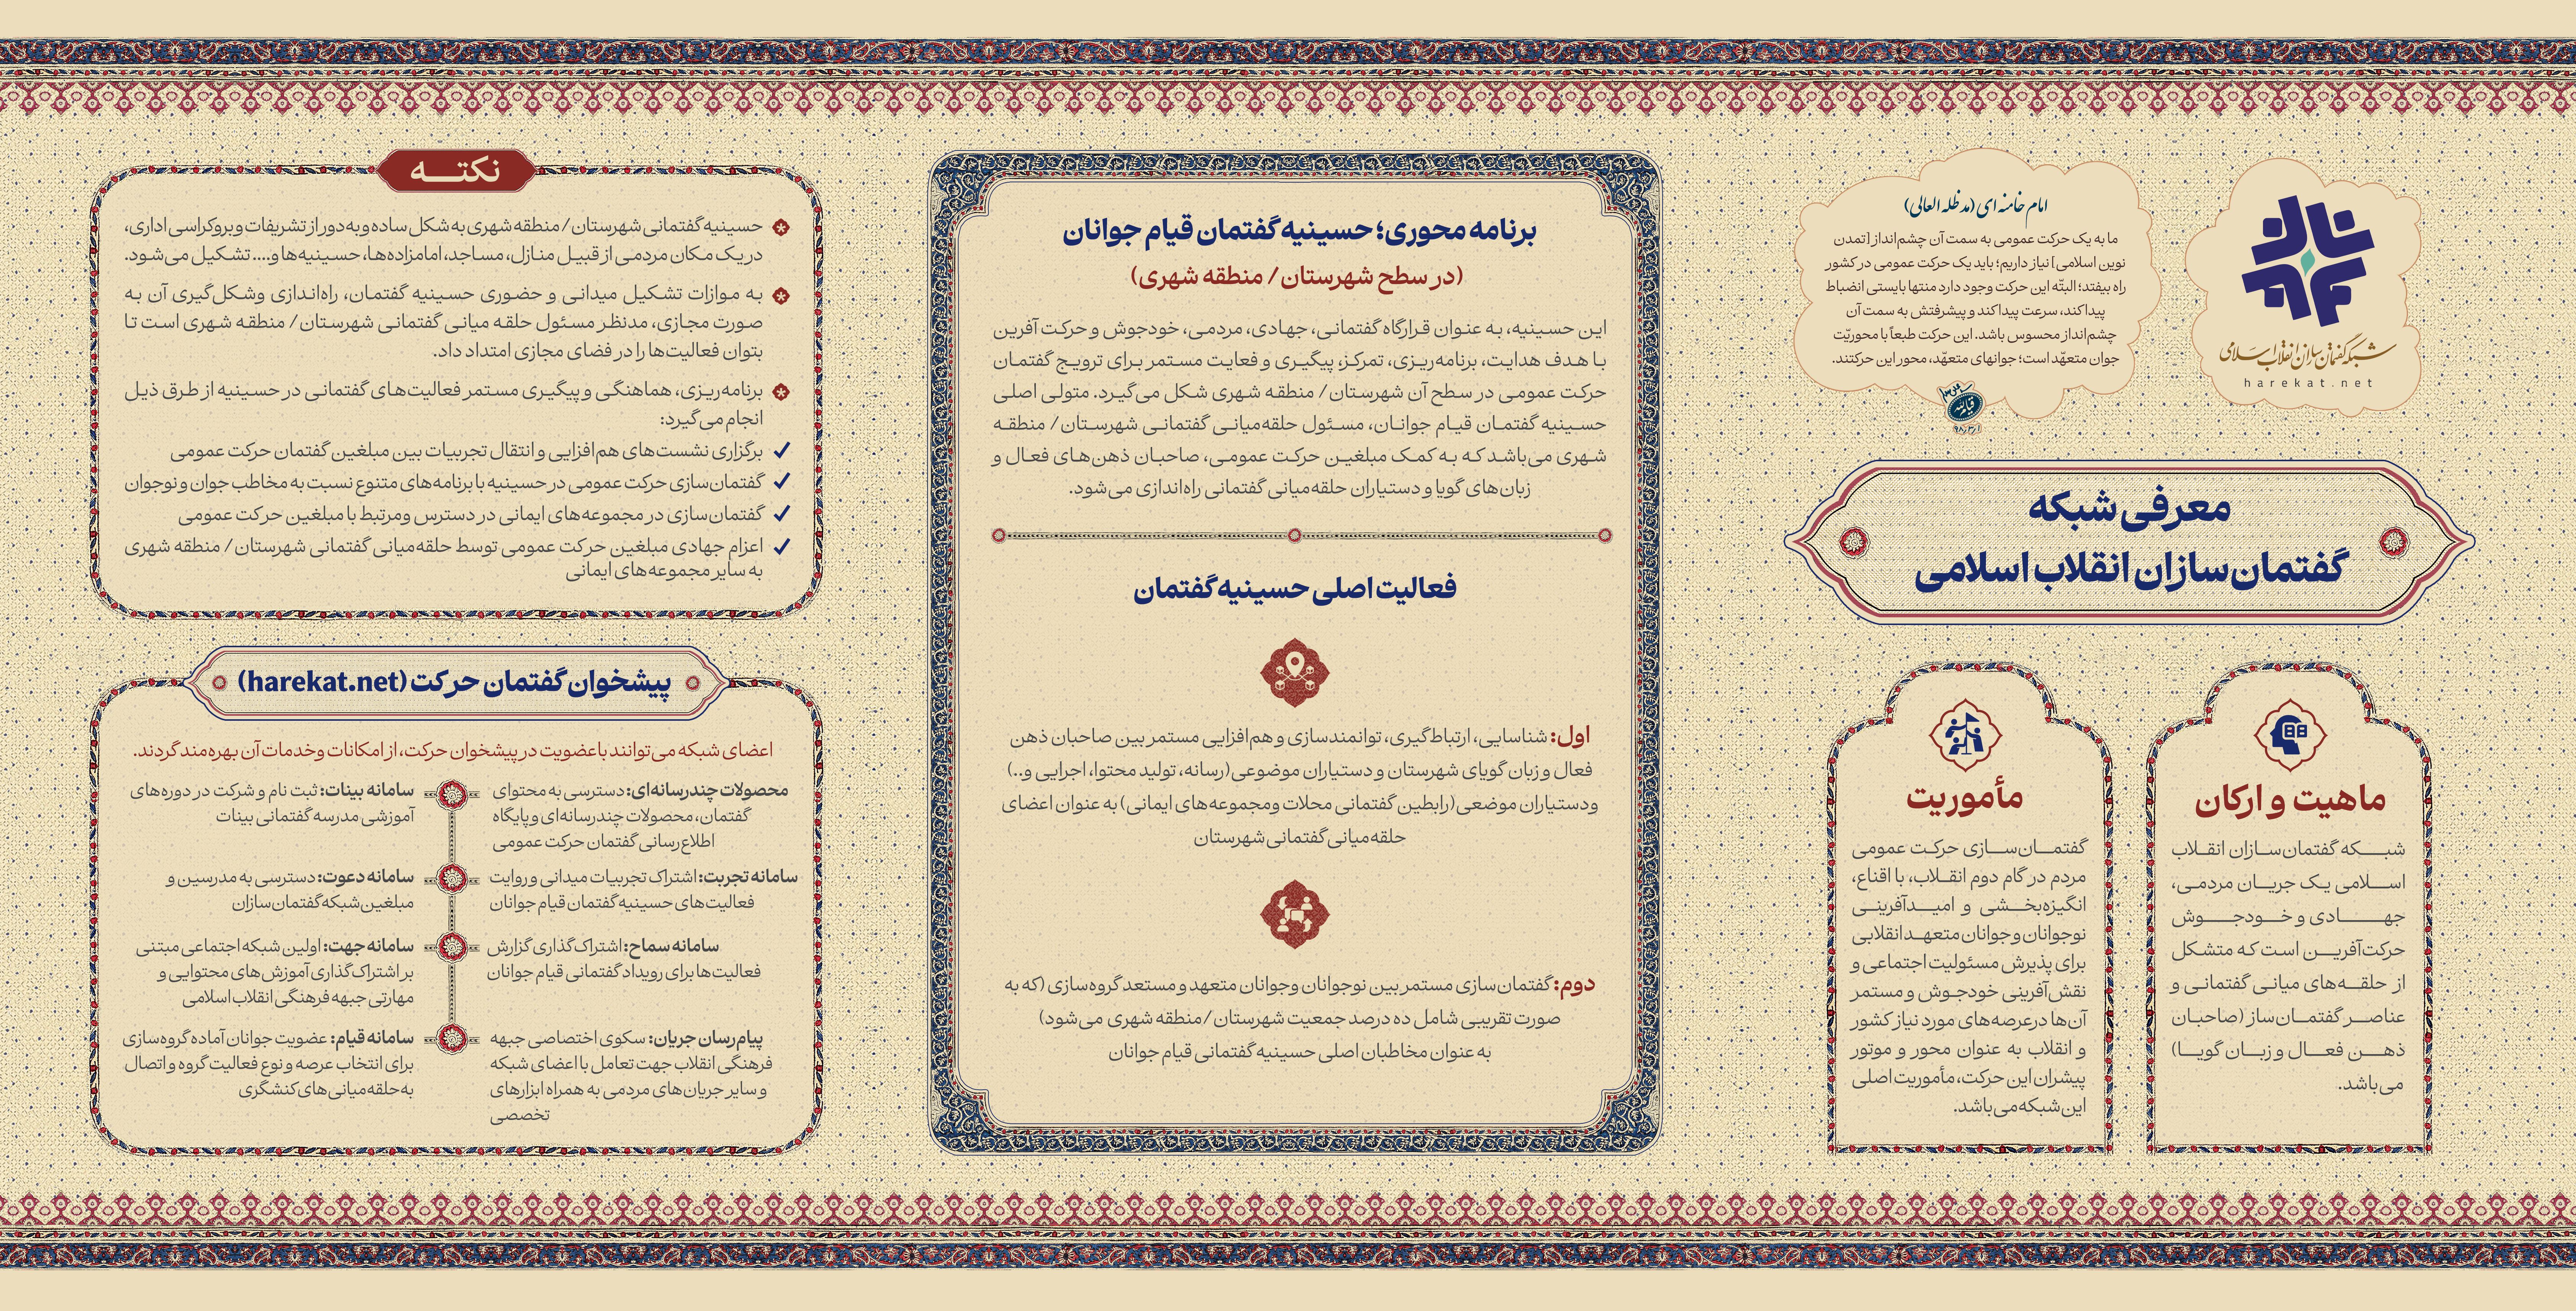 شبکه گفتمان‌سازان انقلاب اسلامی
harekat.net
امام خامنه ای (مد ظله العالی)
ما به یک حرکت عمومی به سمت آن چشم‌انداز [تمدن
نوین اسلامی] نیاز داریم؛ باید یک حرکت عمومی در کشور
راه بیفتد؛ البتّه این حرکت وجود دارد منتها بایستی انضباط
پیدا کند، سرعت پیدا کند و پیشرفتش به سمت آن
چشم‌انداز محسوس باشد. این حرکت طبعاً با محوریّت
جوان متعهّد است؛ جوانهای متعهّد، محور این حرکتند.
۹۸/۳/۱
معرفی شبکه
گفتمان‌سازان انقلاب اسلامی
ماهیت و ارکان
شبکه گفتمان‌سازان انقلاب
اسلامی یک جریان مردمی،
جهادی و خودجوش
حرکت‌آفرین است که متشکل
از حلقه‌های میانی گفتمانی و
عناصر گفتمان‌ساز (صاحبان
ذهن فعال و زبان گویا)
می‌باشد.
مأموریت
گفتمان‌سازی حرکت عمومی
مردم در گام دوم انقلاب، با اقناع،
انگیزه‌بخشی و امیدآفرینی
نوجوانان و جوانان متعهد انقلابی
برای پذیرش مسئولیت اجتماعی و
نقش‌آفرینی خودجوش و مستمر
آن‌ها در عرصه‌های مورد نیاز کشور
و انقلاب به عنوان محور و موتور
پیشران این حرکت، مأموریت اصلی
این شبکه می‌باشد.
برنامه محوری؛ حسینیه گفتمان قیام جوانان
(در سطح شهرستان/ منطقه شهری)
این حسینیه، به عنوان قرارگاه گفتمانی، جهادی، مردمی، خودجوش و حرکت آفرین
با هدف هدایت، برنامه‌ریزی، تمرکز، پیگیری و فعایت مستمر برای ترویج گفتمان
حرکت عمومی در سطح آن شهرستان/ منطقه شهری شکل می‌گیرد. متولی اصلی
حسینیه گفتمان قیام جوانان، مسئول حلقه‌میانی گفتمانی شهرستان/ منطقه
شهری می‌باشد که به کمک مبلغین حرکت عمومی، صاحبان ذهن‌های فعال و
زبان‌های گویا و دستیاران حلقه‌میانی گفتمانی راه‌اندازی می‌شود.
فعالیت اصلی حسینیه گفتمان
اول: شناسایی، ارتباط‌گیری، توانمندسازی و هم‌افزایی مستمر بین صاحبان ذهن
فعال و زبان گویای شهرستان و دستیاران موضوعی(رسانه، تولید محتوا، اجرایی و..)
ودستیاران موضعی(رابطین گفتمانی محلات ومجموعه‌های ایمانی) به عنوان اعضای
حلقه‌میانی گفتمانی شهرستان
دوم: گفتمان‌سازی مستمر بین نوجوانان وجوانان متعهد و مستعد گروه‌سازی (که به
صورت تقریبی شامل ده درصد جمعیت شهرستان/منطقه شهری می‌شود)
به عنوان مخاطبان اصلی حسینیه گفتمانی قیام جوانان
نکتـه
حسینیه گفتمانی شهرستان/ منطقه شهری به شکل ساده و به دور از تشریفات وبروکراسی اداری،
در یک مکان مردمی از قبیل منازل، مساجد، امامزاده‌ها، حسینیه‌ها و.... تشکیل می‌شود.
به موازات تشکیل میدانی و حضوری حسینیه گفتمان، راه‌اندازی وشکل‌گیری آن به
صورت مجازی، مدنظر مسئول حلقه میانی گفتمانی شهرستان/ منطقه شهری است تا
بتوان فعالیت‌ها را در فضای مجازی امتداد داد.
برنامه‌ریزی، هماهنگی و پیگیری مستمر فعالیت‌های گفتمانی در حسینیه از طرق ذیل
انجام می‌گیرد:
برگزاری نشست‌های هم‌افزایی و انتقال تجربیات بین مبلغین گفتمان حرکت عمومی
گفتمان‌سازی حرکت عمومی در حسینیه با برنامه‌های متنوع نسبت به مخاطب جوان و نوجوان
گفتمان‌سازی در مجموعه‌های ایمانی در دسترس ومرتبط با مبلغین حرکت عمومی
اعزام جهادی مبلغین حرکت عمومی توسط حلقه‌میانی گفتمانی شهرستان/ منطقه شهری
به سایر مجموعه‌های ایمانی
پیشخوان گفتمان حرکت (harekat.net)
اعضای شبکه می‌توانند باعضویت در پیشخوان حرکت، از امکانات وخدمات آن بهره‌مند گردند.
محصولات چندرسانه‌ای: دسترسی به محتوای
گفتمان، محصولات چندرسانه‌ای و پایگاه
اطلاع‌رسانی گفتمان حرکت عمومی
سامانه بینات: ثبت نام و شرکت در دوره‌های
آموزشی مدرسه گفتمانی بینات
سامانه تجربت: اشتراک تجربیات میدانی و روایت
فعالیت‌های حسینیه گفتمان قیام جوانان
سامانه دعوت: دسترسی به مدرسین و
مبلغین شبکه گفتمان‌سازان
سامانه سماح: اشتراک‌گذاری گزارش
فعالیت‌ها برای رویداد گفتمانی قیام جوانان
سامانه جهت: اولین شبکه اجتماعی مبتنی
بر اشتراک‌گذاری آموزش‌های محتوایی و
مهارتی جبهه فرهنگی انقلاب اسلامی
پیام‌رسان جریان: سکوی اختصاصی جبهه
فرهنگی انقلاب جهت تعامل با اعضای شبکه
و سایر جریان‌های مردمی به همراه ابزارهای
تخصصی
سامانه قیام: عضویت جوانان آماده گروه‌سازی
برای انتخاب عرصه و نوع فعالیت گروه و اتصال
به حلقه‌میانی‌های کنشگری